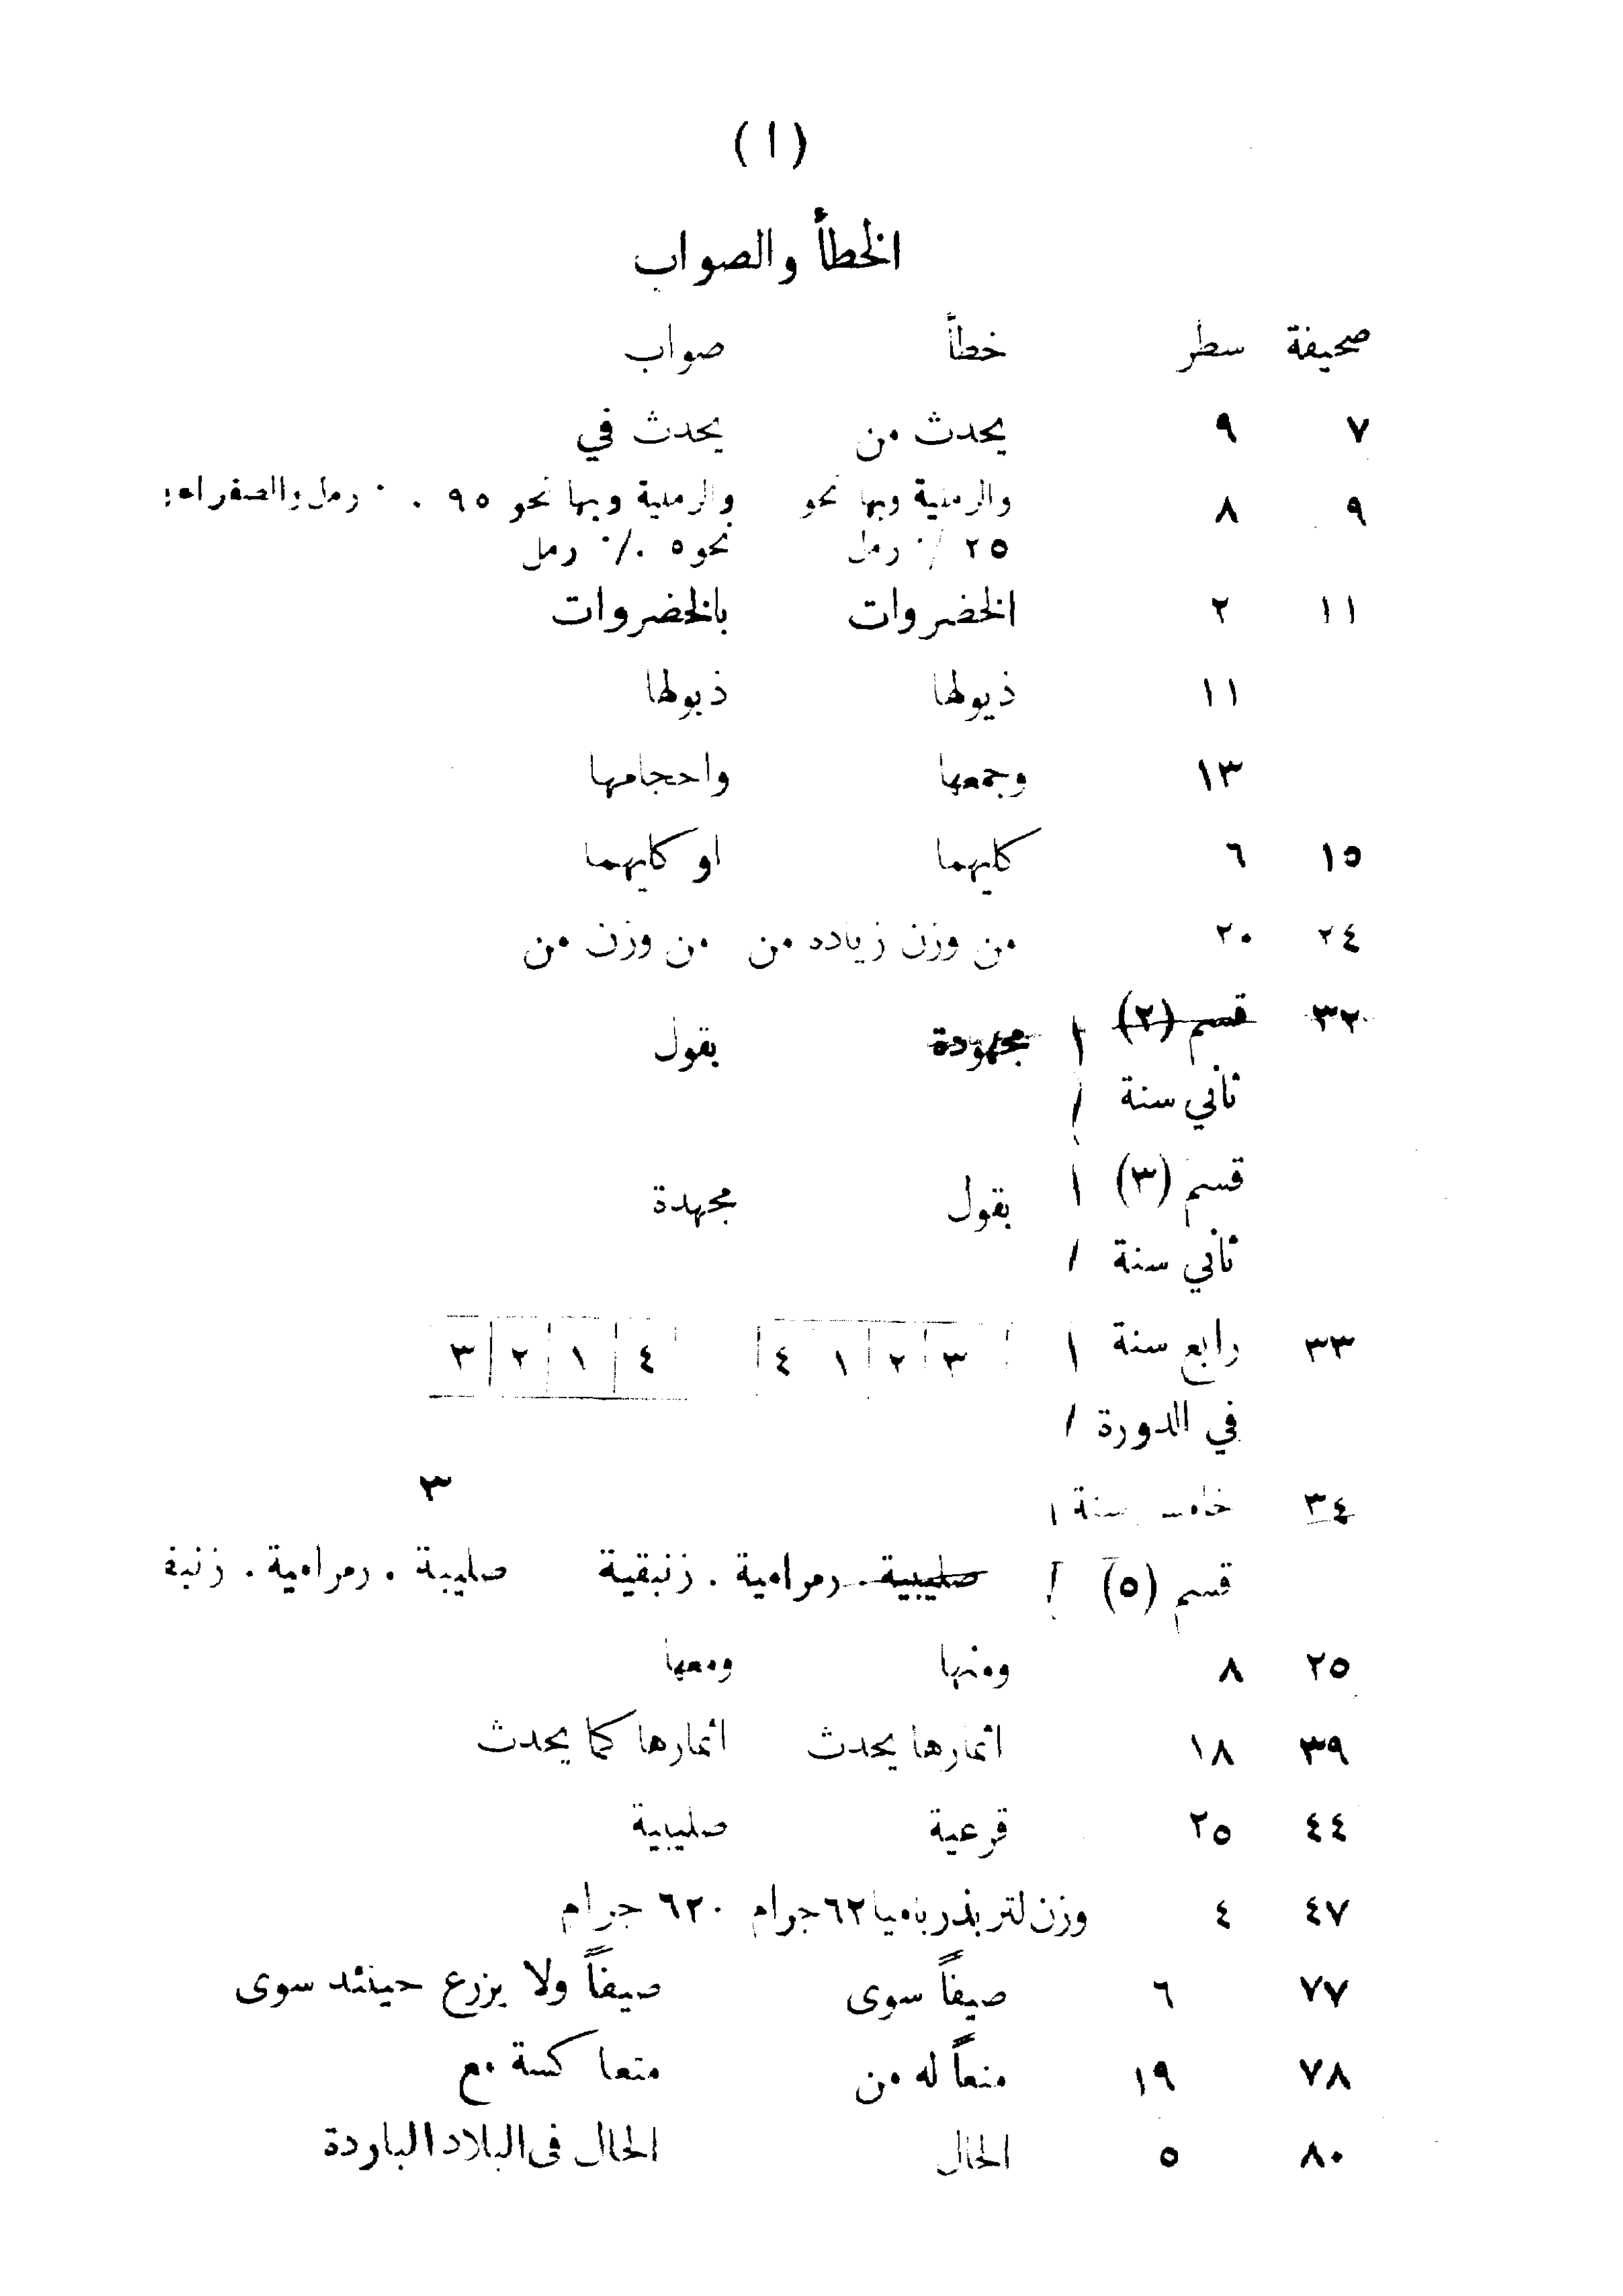 (١)
الخطأ والصواب
صحيفة سطر خطأ صواب
٧ ٩ يحدث من يحدث في
٩ ٨ والرملية وبها نحو والرملية وبها نحو ٩٥ ٠ رمل والصفراء
٢٥ ٪ رمل نحو ٥ ٪ رمل
١١ ٢ الخضروات بالخضروات
١١ ذيولها ذبولها
١٣ وجمعها واحجامها
١٥ ٦ كليهما او كليهما
٢٤ ٢٠ من وزن زياده من من وزن من
٣٢ قسم (٢) مجهودة بقول
ثاني سنة
قسم (٣) بقول مجهدة
ثاني سنة
٣٣ رابع سنة ٣ ٢ ١ ٤ ٤ ١ ٢ ٣
في الدورة
٣٤ سنة ٣
قسم (٥) صليبية . رمرامية . زنبقية صليبة . رمرامية . زنبق
٢٥ ٨ ومنها ومعها
٣٩ ١٨ اثمارها يحدث اثمارها كما يحدث
٤٤ ٢٥ قرعية صليبية
٤٧ ٤ وزن لتر بذر باميا ٦٢ جرام ٦٢٠ جرام
٧٧ ٦ صيفاً سوى صيفاً ولا يزرع حينئد سوى
٧٨ ١٩ منعاً له من متعاكسة مع
٨٠ ٥ الحال الحال فى البلاد الباردة